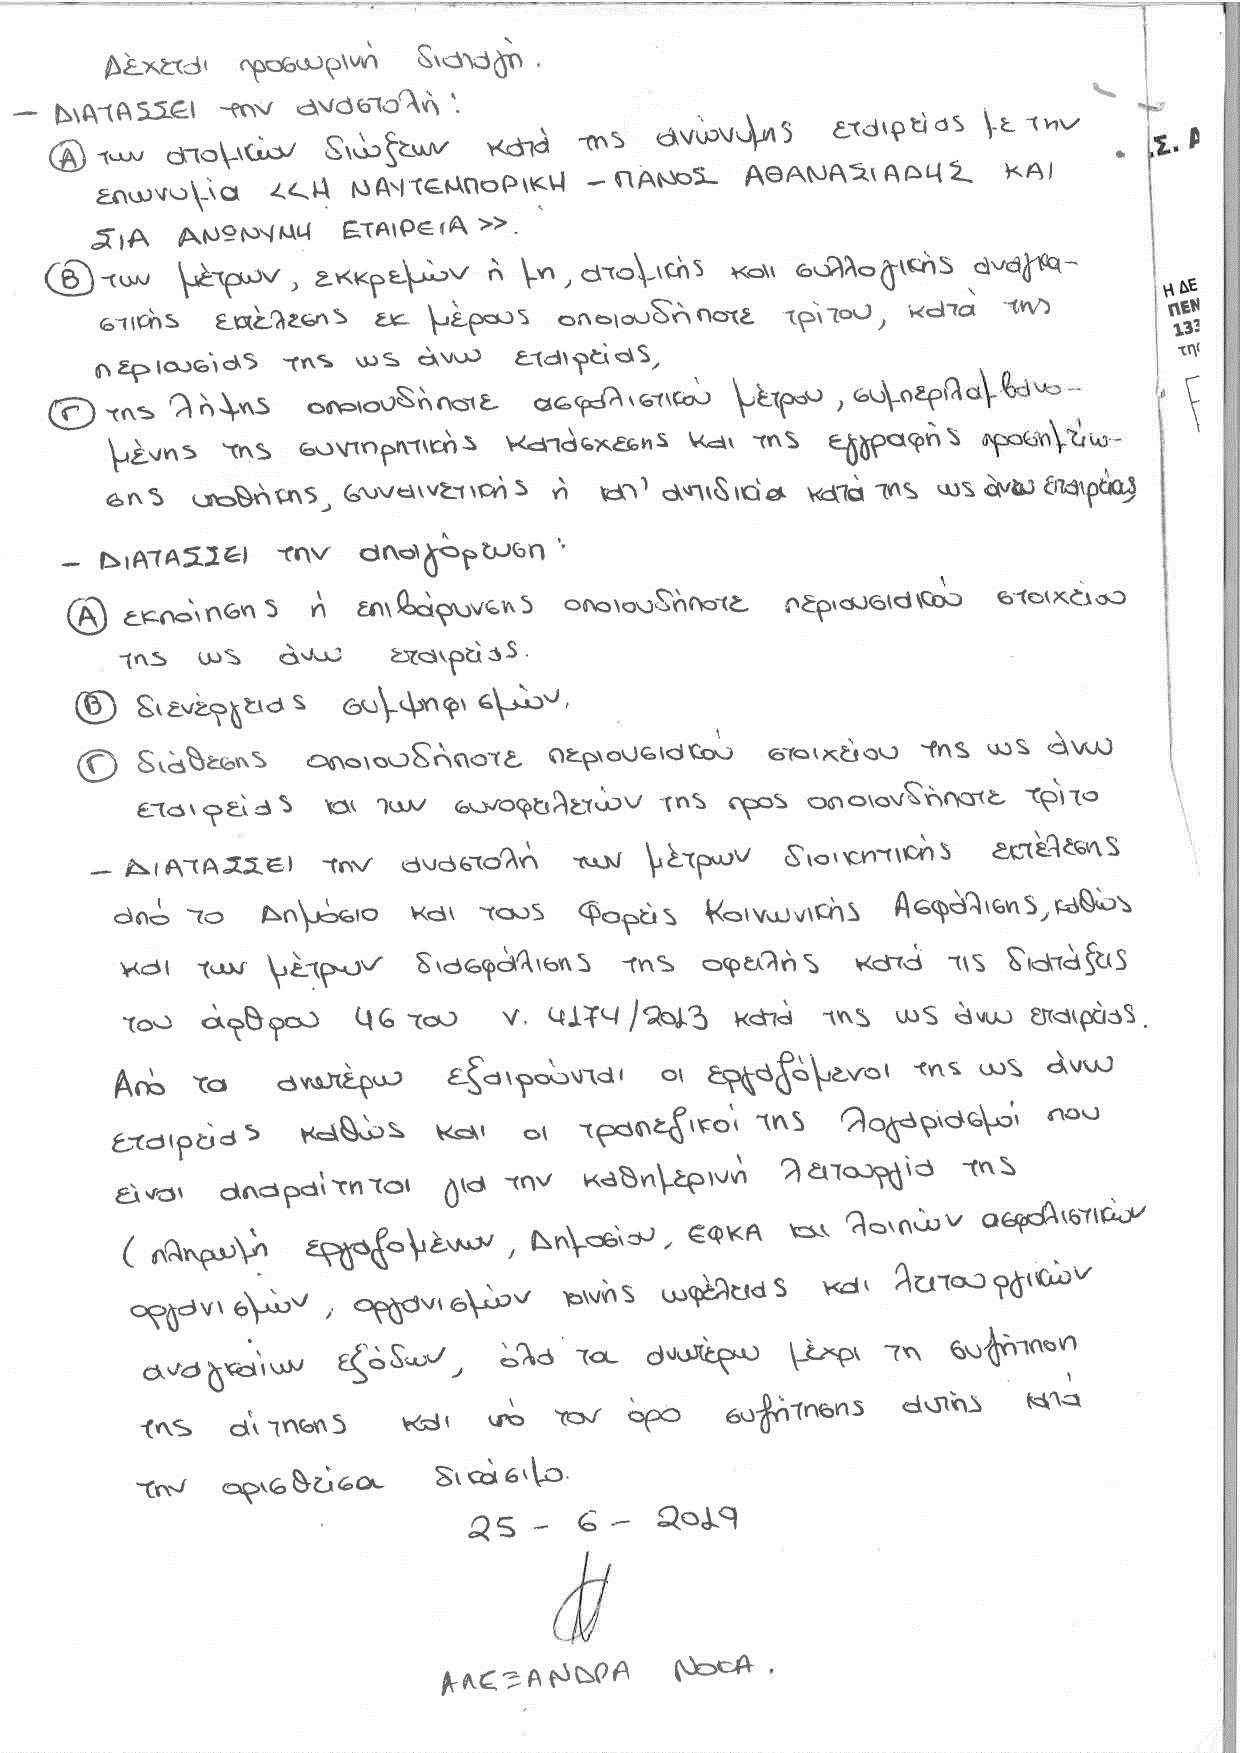 Δέχεται προσωρινή διαταγή.
– ΔΙΑΤΑΣΣΕΙ την αναστολή:
Α των ατομικών διώξεων κατά της ανώνυμης εταιρείας με την
επωνυμία <<Η ΝΑΥΤΕΜΠΟΡΙΚΗ – ΠΑΝΟΣ ΑΘΑΝΑΣΙΑΔΗΣ ΚΑΙ
ΣΙΑ ΑΝΩΝΥΜΗ ΕΤΑΙΡΕΙΑ>>.
Β των μέτρων, εκκρεμών ή μη, ατομικής και συλλογικής αναγκα-
στικής εκτέλεσης εκ μέρους οποιουδήποτε τρίτου, κατά της
περιουσίας της ως άνω εταιρείας,
Γ της λήψης οποιουδήποτε ασφαλιστικού μέτρου, συμπεριλαμβανο-
μένης της συντηρητικής κατάσχεσης και της εγγραφής προσημείω-
σης υποθήκης, συναινετικής ή κατ' αντιδικία κατά της ως άνω εταιρείας
– ΔΙΑΤΑΣΣΕΙ την απαγόρευση:
Α εκποίησης ή επιβάρυνσης οποιουδήποτε περιουσιακού στοιχείου
της ως άνω εταιρείας.
Β διενέργειας συμψηφισμών,
Γ διάθεσης οποιουδήποτε περιουσιακού στοιχείου της ως άνω
εταιρείας και των συνοφειλετών της προς οποιονδήποτε τρίτο
– ΔΙΑΤΑΣΣΕΙ την αναστολή των μέτρων διοικητικής εκτέλεσης
από το Δημόσιο και τους Φορείς Κοινωνικής Ασφάλισης, καθώς
και των μέτρων διασφάλισης της οφειλής κατά τις διατάξεις
του άρθρου 46 του ν. 4174/2013 κατά της ως άνω εταιρείας.
Από τα ανωτέρω εξαιρούνται οι εργαζόμενοι της ως άνω
εταιρείας καθώς και οι τραπεζικοί της λογαρισμοί που
είναι απαραίτητοι για την καθημερινή λειτουργία της
(πληρωμή εργαζομένων, Δημοσίου, ΕΦΚΑ και λοιπών ασφαλιστικών
οργανισμών, οργανισμών κοινής ωφέλειας και λειτουργικών
αναγκαίων εξόδων, όλα τα ανωτέρω μέχρι τη συζήτηση
της αίτησης και υπό τον όρο συζήτησης αυτής κατά
την ορισθείσα δικάσιμο.
25 – 6 – 2019
ΑΛΕΞΑΝΔΡΑ ΝΟΚΑ.
.Σ. Α
Η ΔΕ
ΠΕΝ
133
της